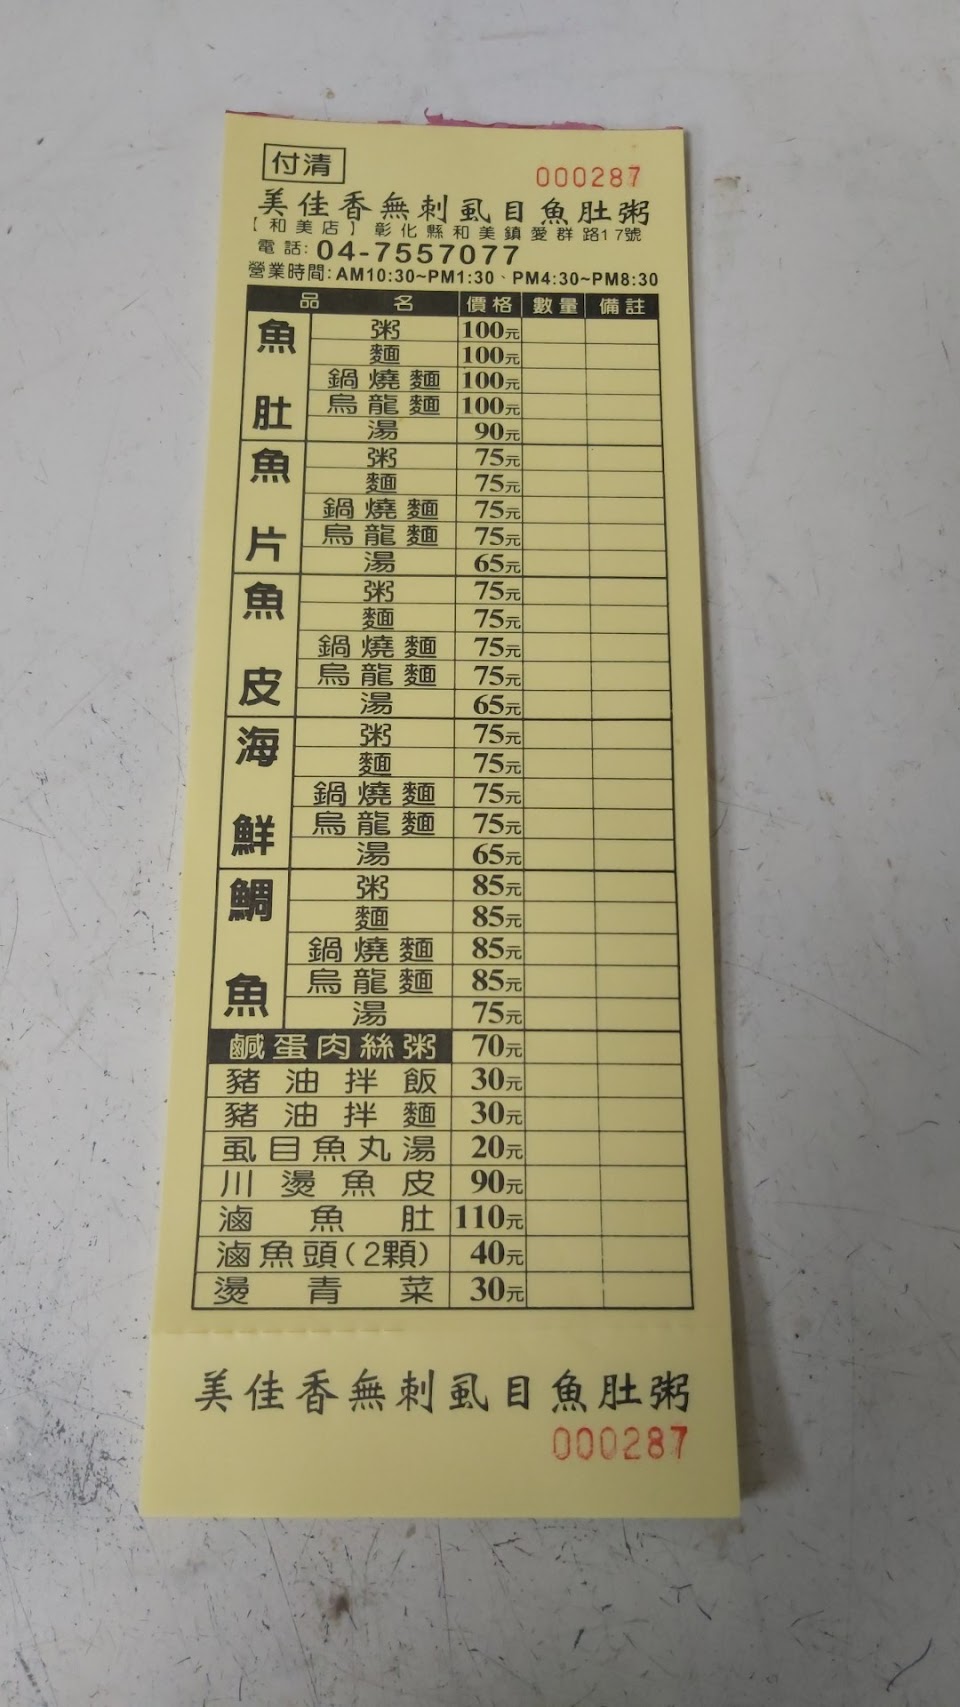 付清
000287
美佳香無刺虱目魚肚粥
【和美店】彰化縣和美鎮愛群路17號
電話:04-7557077
營業時間:AM10:30~PM1:30、PM4:30~PM8:30
品名 價格 數量 備註
魚肚
粥 100元
麵 100元
鍋燒麵 100元
烏龍麵 100元
湯 90元
魚片
粥 75元
麵 75元
鍋燒麵 75元
烏龍麵 75元
湯 65元
魚皮
粥 75元
麵 75元
鍋燒麵 75元
烏龍麵 75元
湯 65元
海鮮
粥 75元
麵 75元
鍋燒麵 75元
烏龍麵 75元
湯 65元
鯛魚
粥 85元
麵 85元
鍋燒麵 85元
烏龍麵 85元
湯 75元
鹹蛋肉絲粥 70元
豬油拌飯 30元
豬油拌麵 30元
虱目魚丸湯 20元
川燙魚皮 90元
滷魚肚 110元
滷魚頭(2顆) 40元
燙青菜 30元
美佳香無刺虱目魚肚粥
000287